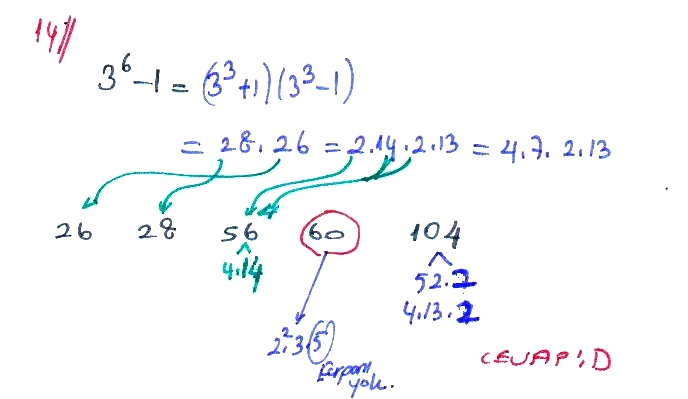 14//
3⁶-1 = (3³+1)(3³-1)
= 28.26 = 2.14.2.13 = 4.7.2.13
26 28 56 60 104
4.14 52.2
4.13.2
2².3.5
çarpanı
yok.
CEVAP: D